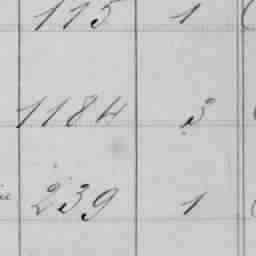 115 1
1184 3
239 1